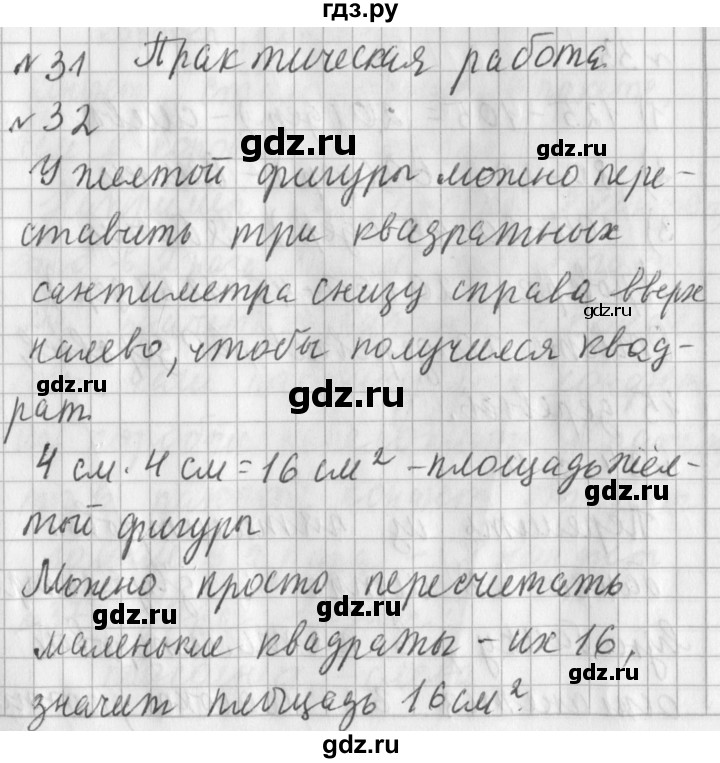 гдз.ру
№31 Практическая работа.
№32
У желтой фигуры можно пере-
ставить три квадратных
сантиметра снизу справа вверх
налево, чтобы получился квад-
рат.
4 см · 4 см = 16 см² - площадь жёл-
той фигуры
Можно просто пересчитать
маленькие квадраты - их 16,
значит площадь 16 см².
gdz.ru
gdz.ru
gdz.ru
gdz.ru
gdz.ru
gdz.ru
gdz.ru
gdz.ru
gdz.ru
gdz.ru
gdz.ru